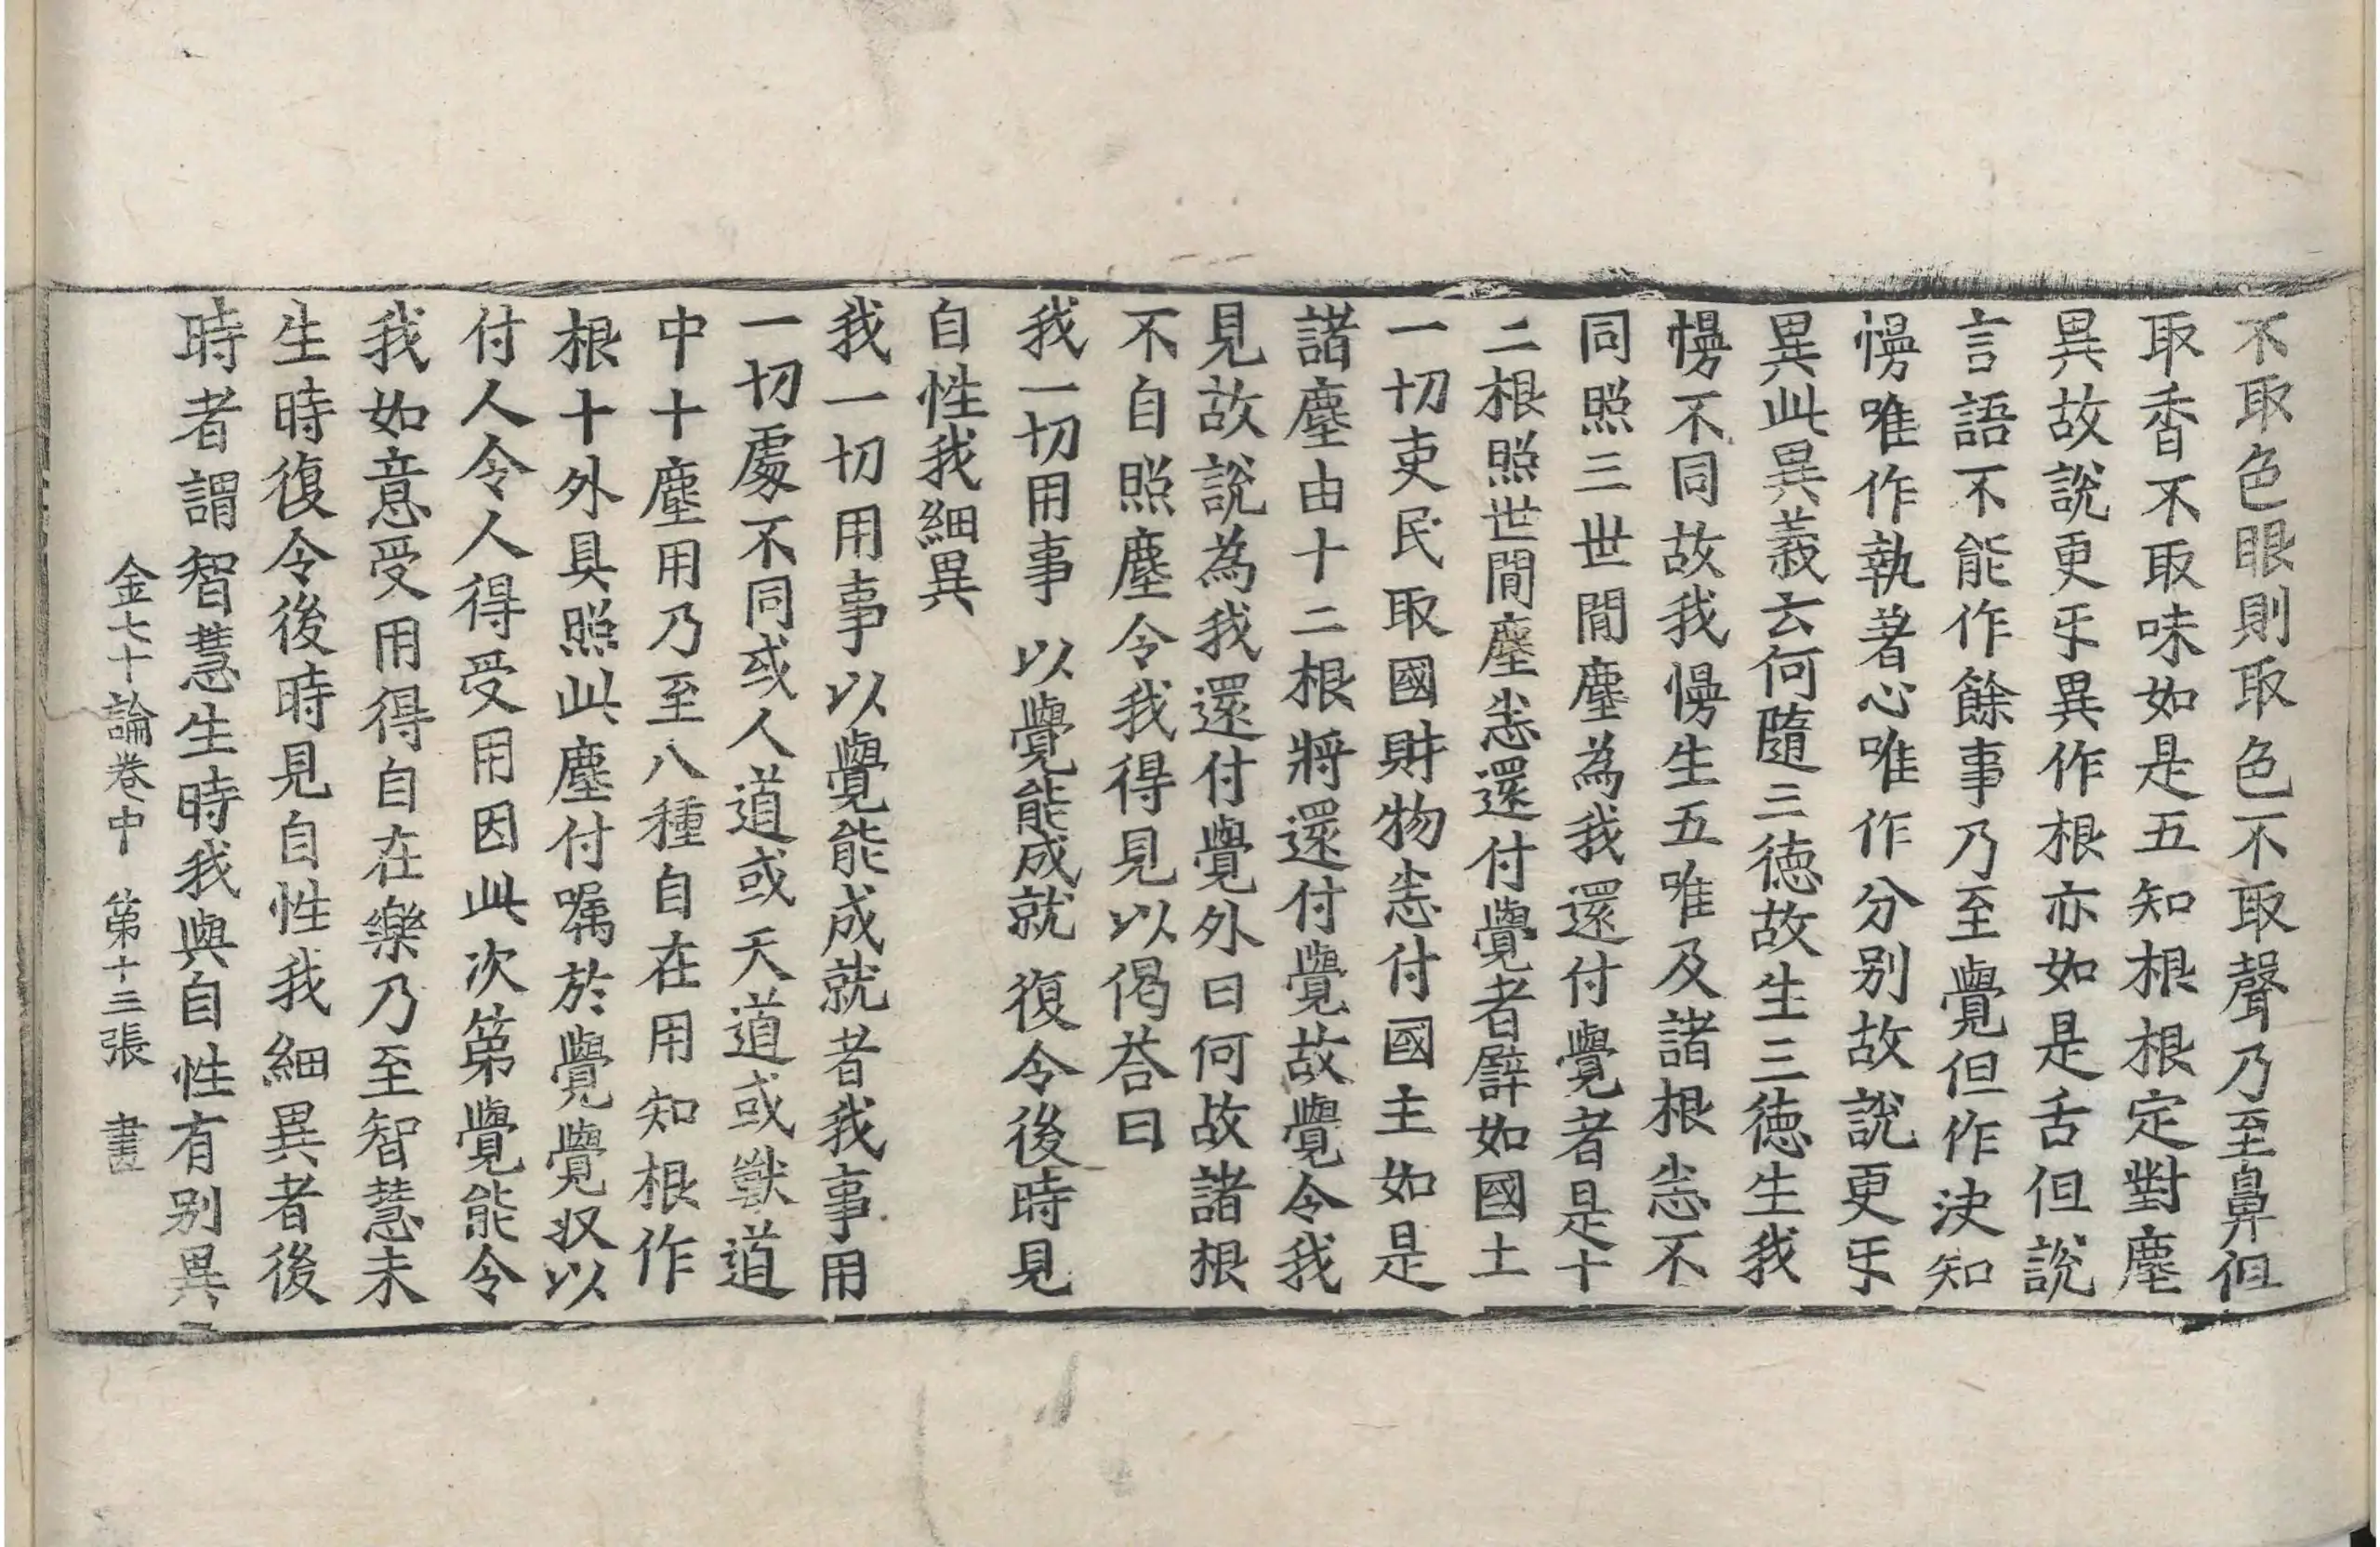 不取色眼則取色不取聲乃至鼻但
取香不取味如是五知根根定對塵
異故說更㸦異作根亦如是舌但說
言語不能作餘事乃至覺但作決知
慢唯作執著心唯作分別故說更㸦
異此異義云何隨三德故生三德生我
慢不同故我慢生五唯及諸根悉不
同照三世間塵為我還付覺者是十
二根照世間塵悉還付覺者譬如國土
一切吏民取國財物悉付國主如是
諸塵由十二根將還付覺故覺令我
見故說為我還付覺外曰何故諸根
不自照塵令我得見以偈荅曰
我一切用事 以覺能成就 復令後時見
自性我細異
我一切用事以覺能成就者我事用
一切處不同或人道或天道或獸道
中十塵用乃至八種自在用知根作
根十外具照此塵付嘱於覺覺収以
付人令人得受用因此次第覺能令
我如意受用得自在樂乃至智慧未
生時復令後時見自性我細異者後
時者謂智慧生時我與自性有別異
金七十論卷中 第十三張 畫